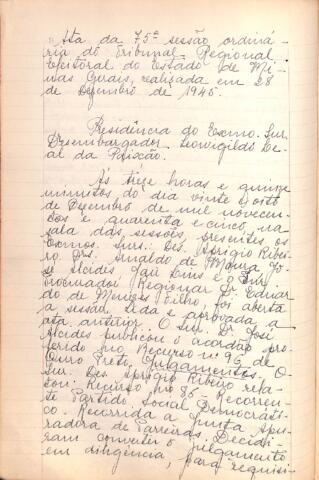 Ata da 75ª sessão ordiná-
ria do Tribunal Regional
Eleitoral do Estado de Mi-
nas Gerais, realizada em 28
de Dezembro de 1945.
Presidência do Exmo. Snr.
Desembargador Leovigildo Le-
al da Paixão.
Às treze horas e quinze
minutos do dia vinte e oito
de Dezembro de mil novecen-
tos e quarenta e cinco, na
sala das sessões, presentes os
Exmos. Snrs. Des. Aprigio Ribei-
ro, Drs. Arnaldo de Moura, Jo-
sé Alcides, Jaú Lins e o Snr.
Procurador Regional Dr. Eduar-
do de Menezes Filho, foi aberta
a sessão. Lida e aprovada a
ata anterior. O Snr. Dr. José
Alcides publicou o acordão pro-
ferido no Recurso nº 96 de
Ouro Preto. Julgamentos. O
Snr. Des. Aprigio Ribeiro rela-
tou: Recurso nº 85 - Recorren-
te Partido Social Democráti-
co. Recorrida a Junta Apu-
radora de Parreiras. Decidi-
ram converter o julgamento
em diligência, para requisi-